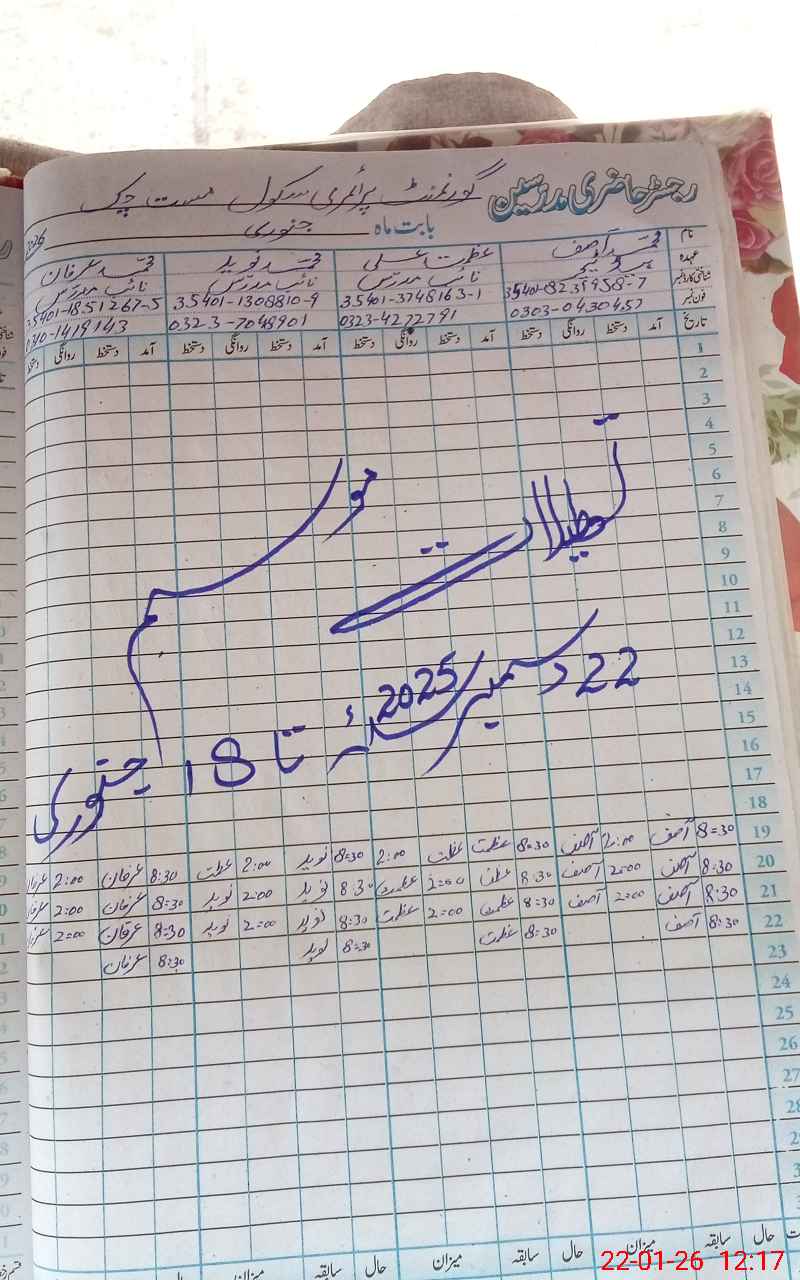 رجسٹر حاضری مدرسین گورنمنٹ پرائمری سکول مست چک
بابت ماہ جنوری 2026
نام محمد آصف عظمت علی محمد نوید محمد عرفان
عہدہ نائب مدرس نائب مدرس نائب مدرس
شناختی کارڈ نمبر 35401-8239958-7 35401-3748163-1 35401-1308810-9 35401-1851267-5
فون نمبر 0303-0430457 0323-4272791 0323-7048901 0310-1419143
تاریخ آمد دستخط روانگی دستخط آمد دستخط روانگی دستخط آمد دستخط روانگی دستخط آمد دستخط روانگی دستخط
1
2
3
4
5
6
7
8
9
10
11
12
13
14
15
16
17
18
تعطیلات موسم
22 دسمبر 2025ء تا 18 جنوری
19 8:30 آصف 2:00 آصف 8:30 عظمت 2:00 عظمت 8:30 نوید 2:00 8:30 عرفان 2:00 عرفان
20 8:30 آصف 2:00 آصف 8:30 عظمت 2:00 عظمت 8:30 نوید 2:00 نوید 8:30 عرفان 2:00 عرفان
21 8:30 آصف 2:00 آصف 8:30 عظمت 2:00 عظمت 8:30 نوید 2:00 نوید 8:30 عرفان 2:00 عرفان
22 8:30 آصف 8:30 عظمت 8:30 نوید 8:30 عرفان
23
24
25
26
27
28
حال سابقہ میزان حال سابقہ میزان حال سابقہ میزان حال
22-01-26 12:17